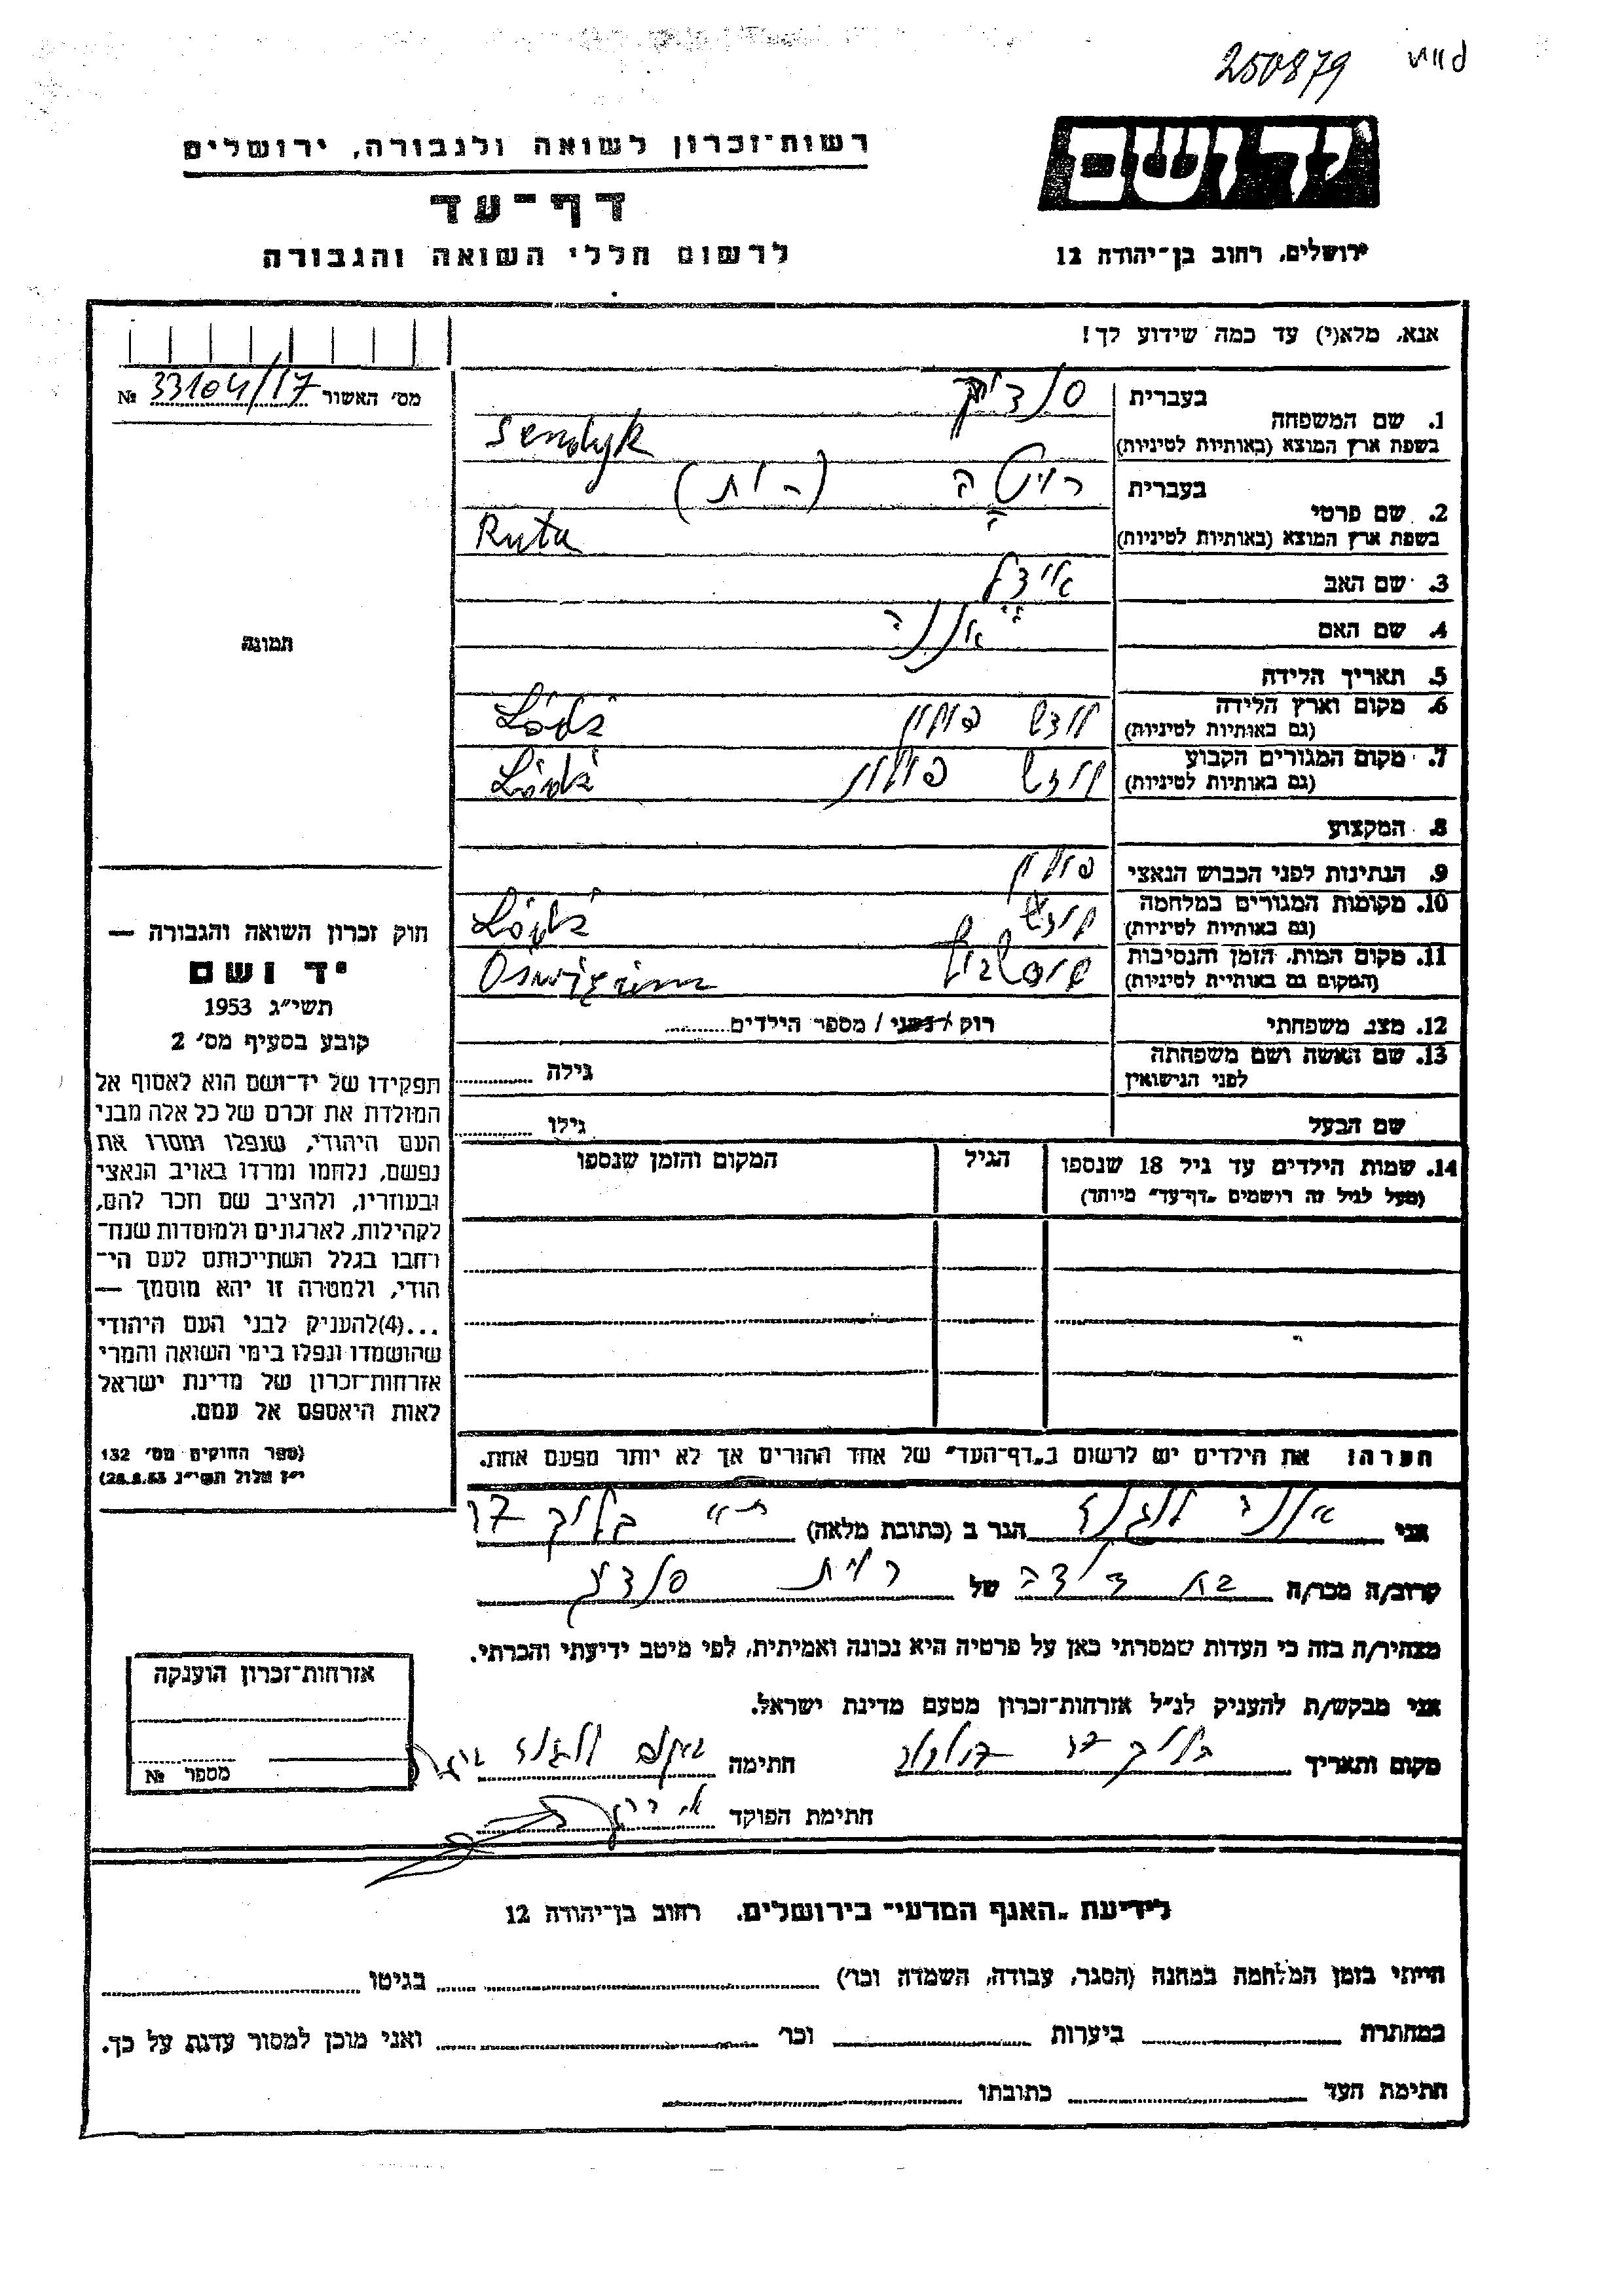 250879
יד ושם
רשות-זכרון לשואה ולגבורה, ירושלים
דף-עד
לרשום חללי השואה והגבורה
ירושלים, רחוב בן-יהודה 12
אנא, מלא(י) עד כמה שידוע לך!
מס׳ האשור 33104/17 №
1. שם המשפחה
בעברית
בשפת ארץ המוצא (באותיות לטיניות) Sendyk
2. שם פרטי
בעברית רויטה (רות)
בשפת ארץ המוצא (באותיות לטיניות) Ruta
3. שם האב
4. שם האם אננה
5. תאריך הלידה
6. מקום וארץ הלידה לודש פולין Łódź
(גם באותיות לטיניות)
7. מקום המגורים הקבוע לודש פולין Łódź
(גם באותיות לטיניות)
8. המקצוע
9. הנתינות לפני הכבוש הנאצי פולין
10. מקומות המגורים במלחמה לודש Łódź
(גם באותיות לטיניות)
11. מקום המות, הזמן והנסיבות
(המקום גם באותיית לטיניות)
12. מצב משפחתי רוק / נשוי / מספר הילדים
13. שם האשה ושם משפחתה גילה
לפני הנישואין
שם הבעל גילו
14. שמות הילדים עד גיל 18 שנספו הגיל המקום והזמן שנספו
(מעל לגיל זה רושמים „דף-עד״ מיוחד)
תמונה
חוק זכרון השואה והגבורה —
יד ושם
תשי״ג 1953
קובע בסעיף מס׳ 2
תפקידו של יד-ושם הוא לאסוף אל
המולדת את זכרם של כל אלה מבני
העם היהודי, שנפלו ומסרו את
נפשם, נלחמו ומרדו באויב הנאצי
ובעוזריו, ולהציב שם וזכר להם,
לקהילות, לארגונים ולמוסדות שנח-
רחבו בגלל השתייכותם לעם הי-
הודי, ולמטרה זו יהא מוסמך —
...(4)להעניק לבני העם היהודי
שהושמדו ונפלו בימי השואה והמרי
אזרחות-זכרון של מדינת ישראל
לאות היאספם אל עמם.
(ספר החוקים מס׳ 132
י״ז אלול תשי״ג 28.8.53)
הערה! את הילדים יש לרשום ב„דף-העד״ של אחד ההורים אך לא יותר מפעם אחת.
אני הגר ב (כתובת מלאה)
קרוב/ה מכר/ה בת דודה של רות
מצהיר/ה בזה כי העדות שמסרתי כאן על פרטיה היא נכונה ואמיתית, לפי מיטב ידיעתי והכרתי.
אני מבקש/ת להעניק לנ״ל אזרחות-זכרון מטעם מדינת ישראל.
מקום ותאריך חתימה
חתימת הפוקד
אזרחות-זכרון הוענקה
מספר №
לידיעת „האגף המדעי״ בירושלים, רחוב בן-יהודה 12
הייתי בזמן המלחמה במחנה (הסגר, עבודה, השמדה וכו׳) בגיטו
במחתרת ביערות וכו׳ ואני מוכן למסור עדות על כך.
חתימת העד כתובתו